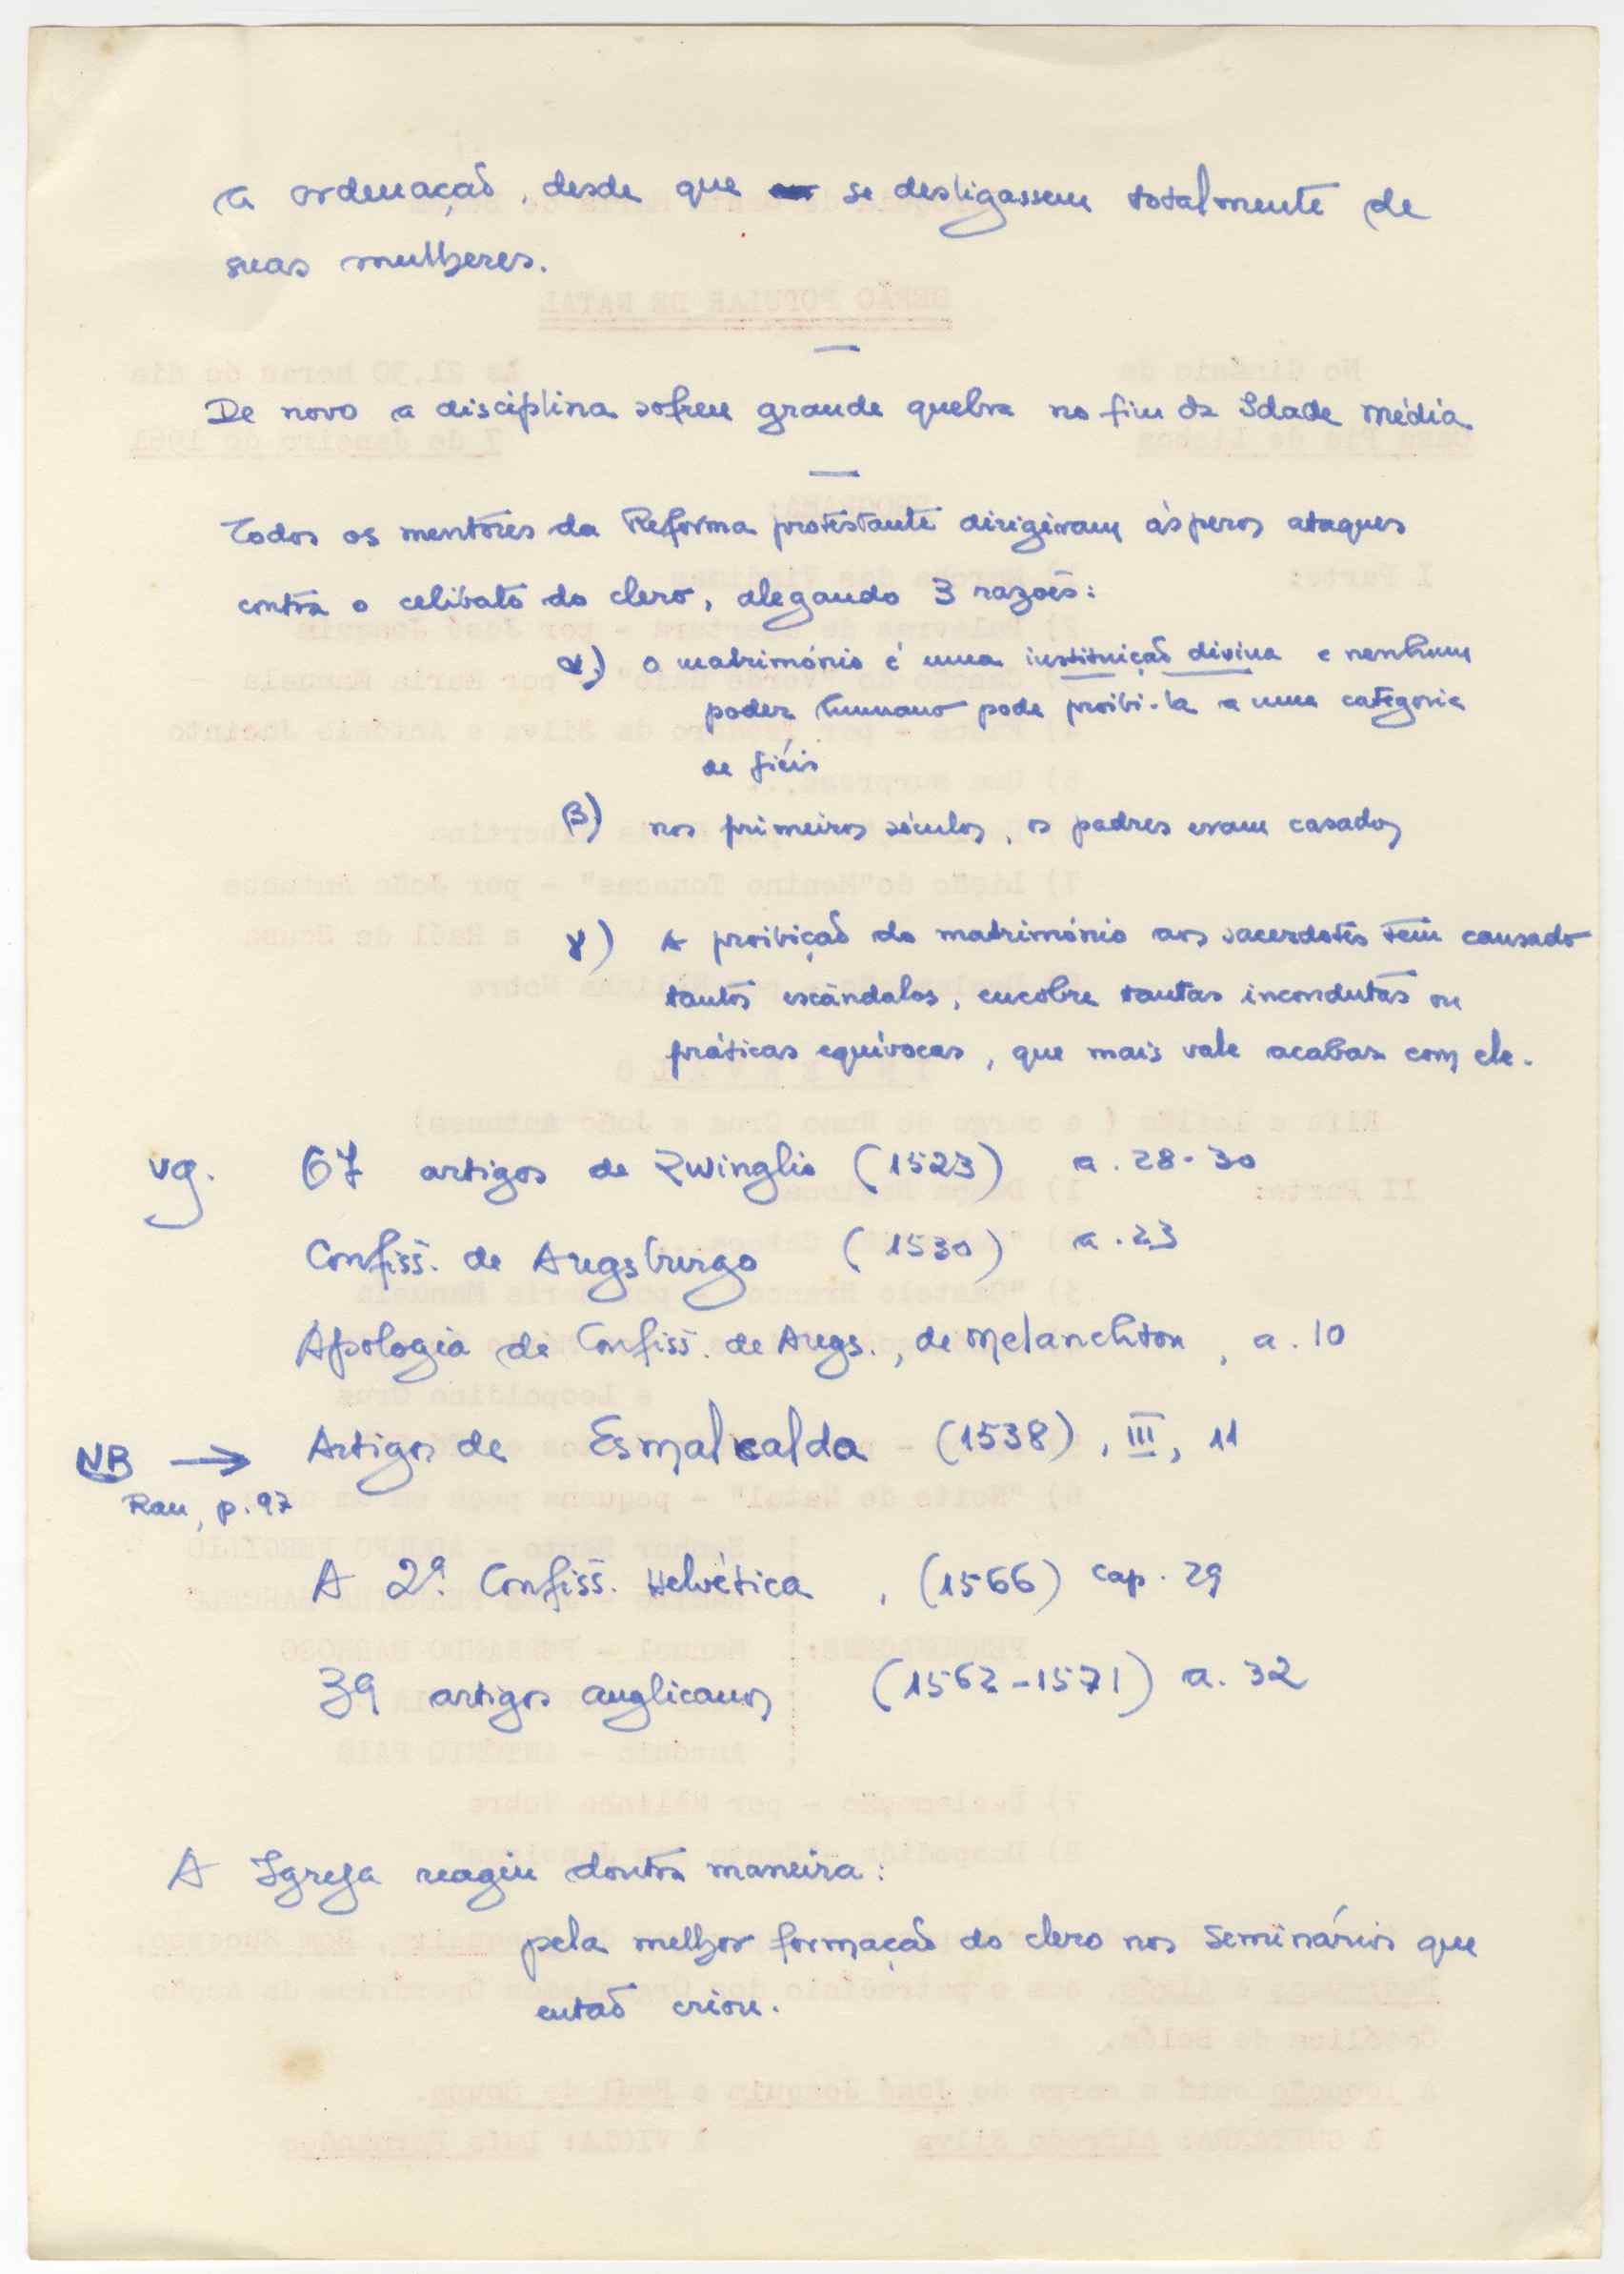 a ordenação, desde que se desligassem totalmente de
suas mulheres.
—
De novo a disciplina sofreu grande quebra no fim da Idade Média.
—
Todos os mentores da Reforma protestante dirigiram ásperos ataques
contra o celibato do clero, alegando 3 razões:
α) o matrimónio é uma instituição divina e nenhum
poder humano pode proibi-la a uma categoria
de fiéis
β) nos primeiros séculos, os padres eram casados
γ) A proibição do matrimónio aos sacerdotes tem causado
tantos escândalos, encobre tantas incondutas ou
práticas equívocas, que mais vale acabar com ele.
vg. 67 artigos de Zwinglio (1523) a. 28-30
Confiss. de Augsburgo (1530) a. 23
Apologia da Confiss. de Augs., de Melanchton, a. 10
NB → Artigos de Esmalcalda (1538), III, 11
Rau, p. 97
A 2ª. Confiss. Helvética, (1566) cap. 29
39 artigos anglicanos (1562-1571) a. 32
A Igreja reagiu doutra maneira:
pela melhor formação do clero nos Seminários que
então criou.